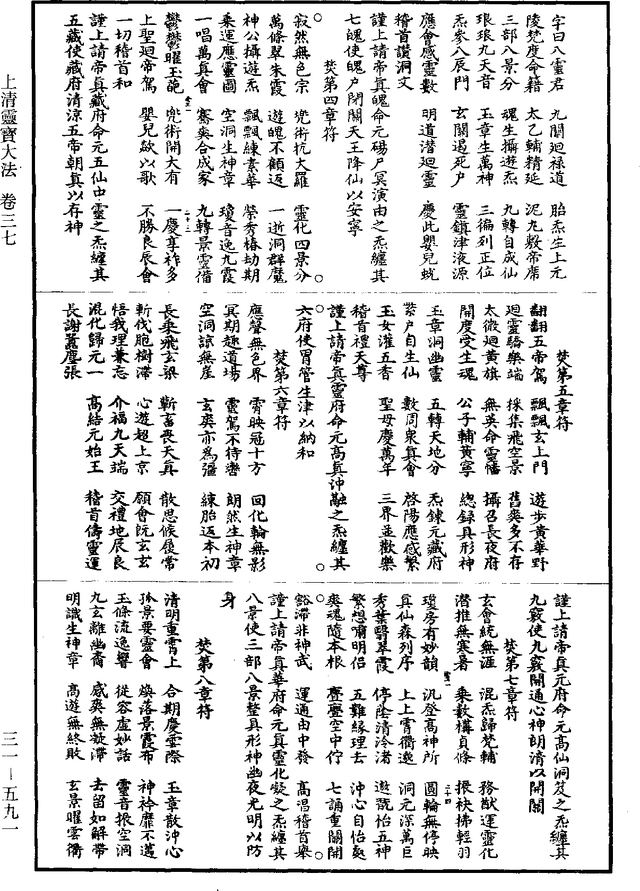 字曰八靈君　九關迴祿道　胎炁生上元
陵梵度命籍　太乙輔精延　泥丸敷帝席
三部八景分　魂生攝遊炁　九轉自成仙
琅琅九天音　玉章生萬神　三徧列正位
炁參八辰門　玄關遏死户　靈鎮津液源
應會感靈數　明道潛迴靈　慶此嬰兒蛻
稽首讚洞文
謹上請帝真魄命元碭尸冥演由之炁纏其
七魄使魄户閉關天王降仙以安寧
焚第四章符
寂然無色宗　兜術抗大羅　靈化四景分
萬條翠朱霞　遊魄不顧返　一逝洞群魔
神公攝遊炁　飄飄練素華　榮秀椿劫期
乘運應靈圖　空洞生神章　瓊音逸九霞
一唱萬真會　騫爽合成家　九轉景靈備
鬱鬱曜玉葩　兜術開大有　一慶享祚多
上聖迴帝駕　嬰兒欻以歌　不勝良辰會
一切稽首和
謹上請帝真藏府命元五仙中靈之炁纏其
五藏使藏府清涼五帝朝真以存神
焚第五章符
翻翻五帝駕　飄飄玄上門　遊步黃華野
迴靈驂樂端　採集飛空景　舊爽多不存
太微迴黃旗　無英命靈幡　攝召長夜府
開度受生魂　公子輔黃寧　總錄具形神
玉章洞幽靈　五轉天地分　炁鍊元藏府
紫户自生仙　數周衆真會　啓陽應感繁
玉女灌五香　聖母慶萬年　三界並歡樂
稽首禮天尊
謹上請帝真靈府命元高真沖融之炁纏其
六府使胃管生津以納和
焚第六章符
應聲無色界　霄映冠十方　回化輪無影
冥期趣道場　靈駕不待轡　朗然生神章
空洞諒無崖　玄爽亦為彊　練胎返本初
長乘飛玄梁　蘄畜喪天真　散思候履常
斬伐胞樹滯　心遊超上京　願會阮玄玄
悟我理兼忘　介福九天端　交禮地辰良
混化歸元一　高結元始王　稽首儔靈運
長謝囂塵張
謹上請帝真元府命元高仙洞笈之炁纏其
九竅使九竅開通心神朗清以開關
焚第七章符
玄會統無涯　混炁歸梵輔　務猷運靈化
潛推無寒暑　乘數構貞條　振袂拂輕羽
瓊房有妙韻　汎登高神所　圓輪無停映
真仙森列序　上上霄衢邀　洞元深萬巨
秀葉翳翠霞　停蔭清泠渚　遊翫怡五神
繁想嘯明侶　五難緣理去　沖心自怡處
爽魂隨本根　亹亹空中佇　七誦重關開
豁滯非神武　運通由中發　高唱稽首舉
謹上請帝真華府命元真靈化凝之炁纏其
八景使三部八景整具形神幽夜光明以防
身
焚第八章符
清明重霄上　合期慶雲際　玉章散沖心
孫景要靈會　煥落景霞布　神衿靡不邁
玉條流逸響　從容虛妙話　靈音振空洞
九玄離幽裔　感爽無凝滯　去留如解帶
明識生神章　高遊無終敗　玄景曜雲衢
上清靈寶大法　卷三七
三一—五九一